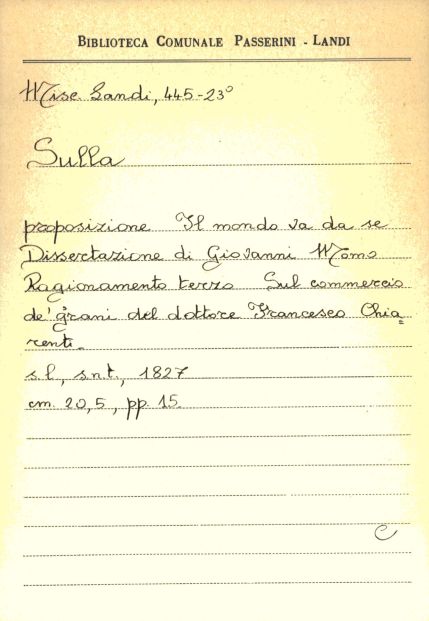 BIBLIOTECA COMUNALE PASSERINI - LANDI
Misc. Landi, 445-23°
Sulla
proposizione Il mondo va da se
Dissertazione di Giovanni Momo
Ragionamento terzo Sul commercio
de' grani del dottore Francesco Chia=
renti.
s.l., s.n.t., 1827
cm. 20,5, pp. 15
C